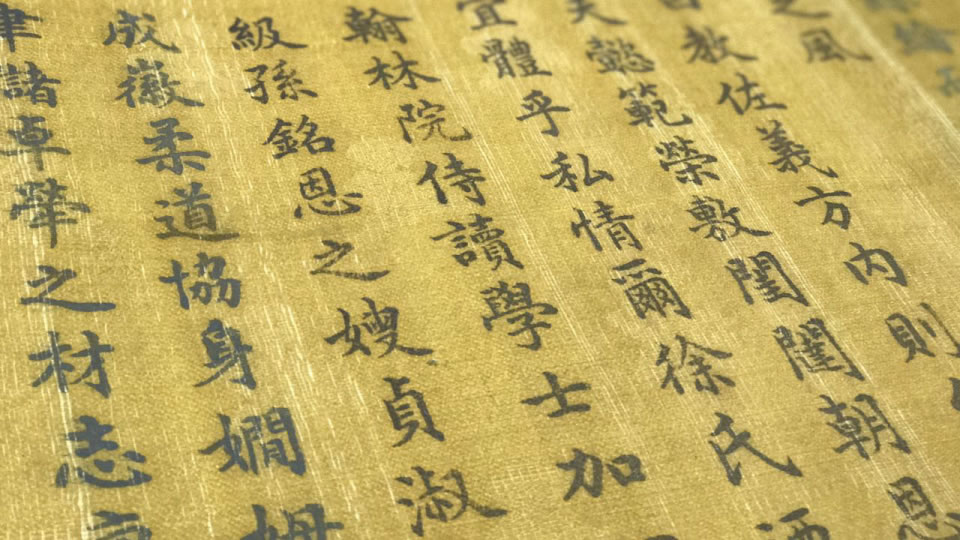 之風
教佐義方內則
懿範榮敷閨闈朝恩
宜體乎私情爾徐氏
翰林院侍讀學士加
級孫銘恩之嫂貞淑
成徽柔道協身嫺姆
諸卓犖之材志